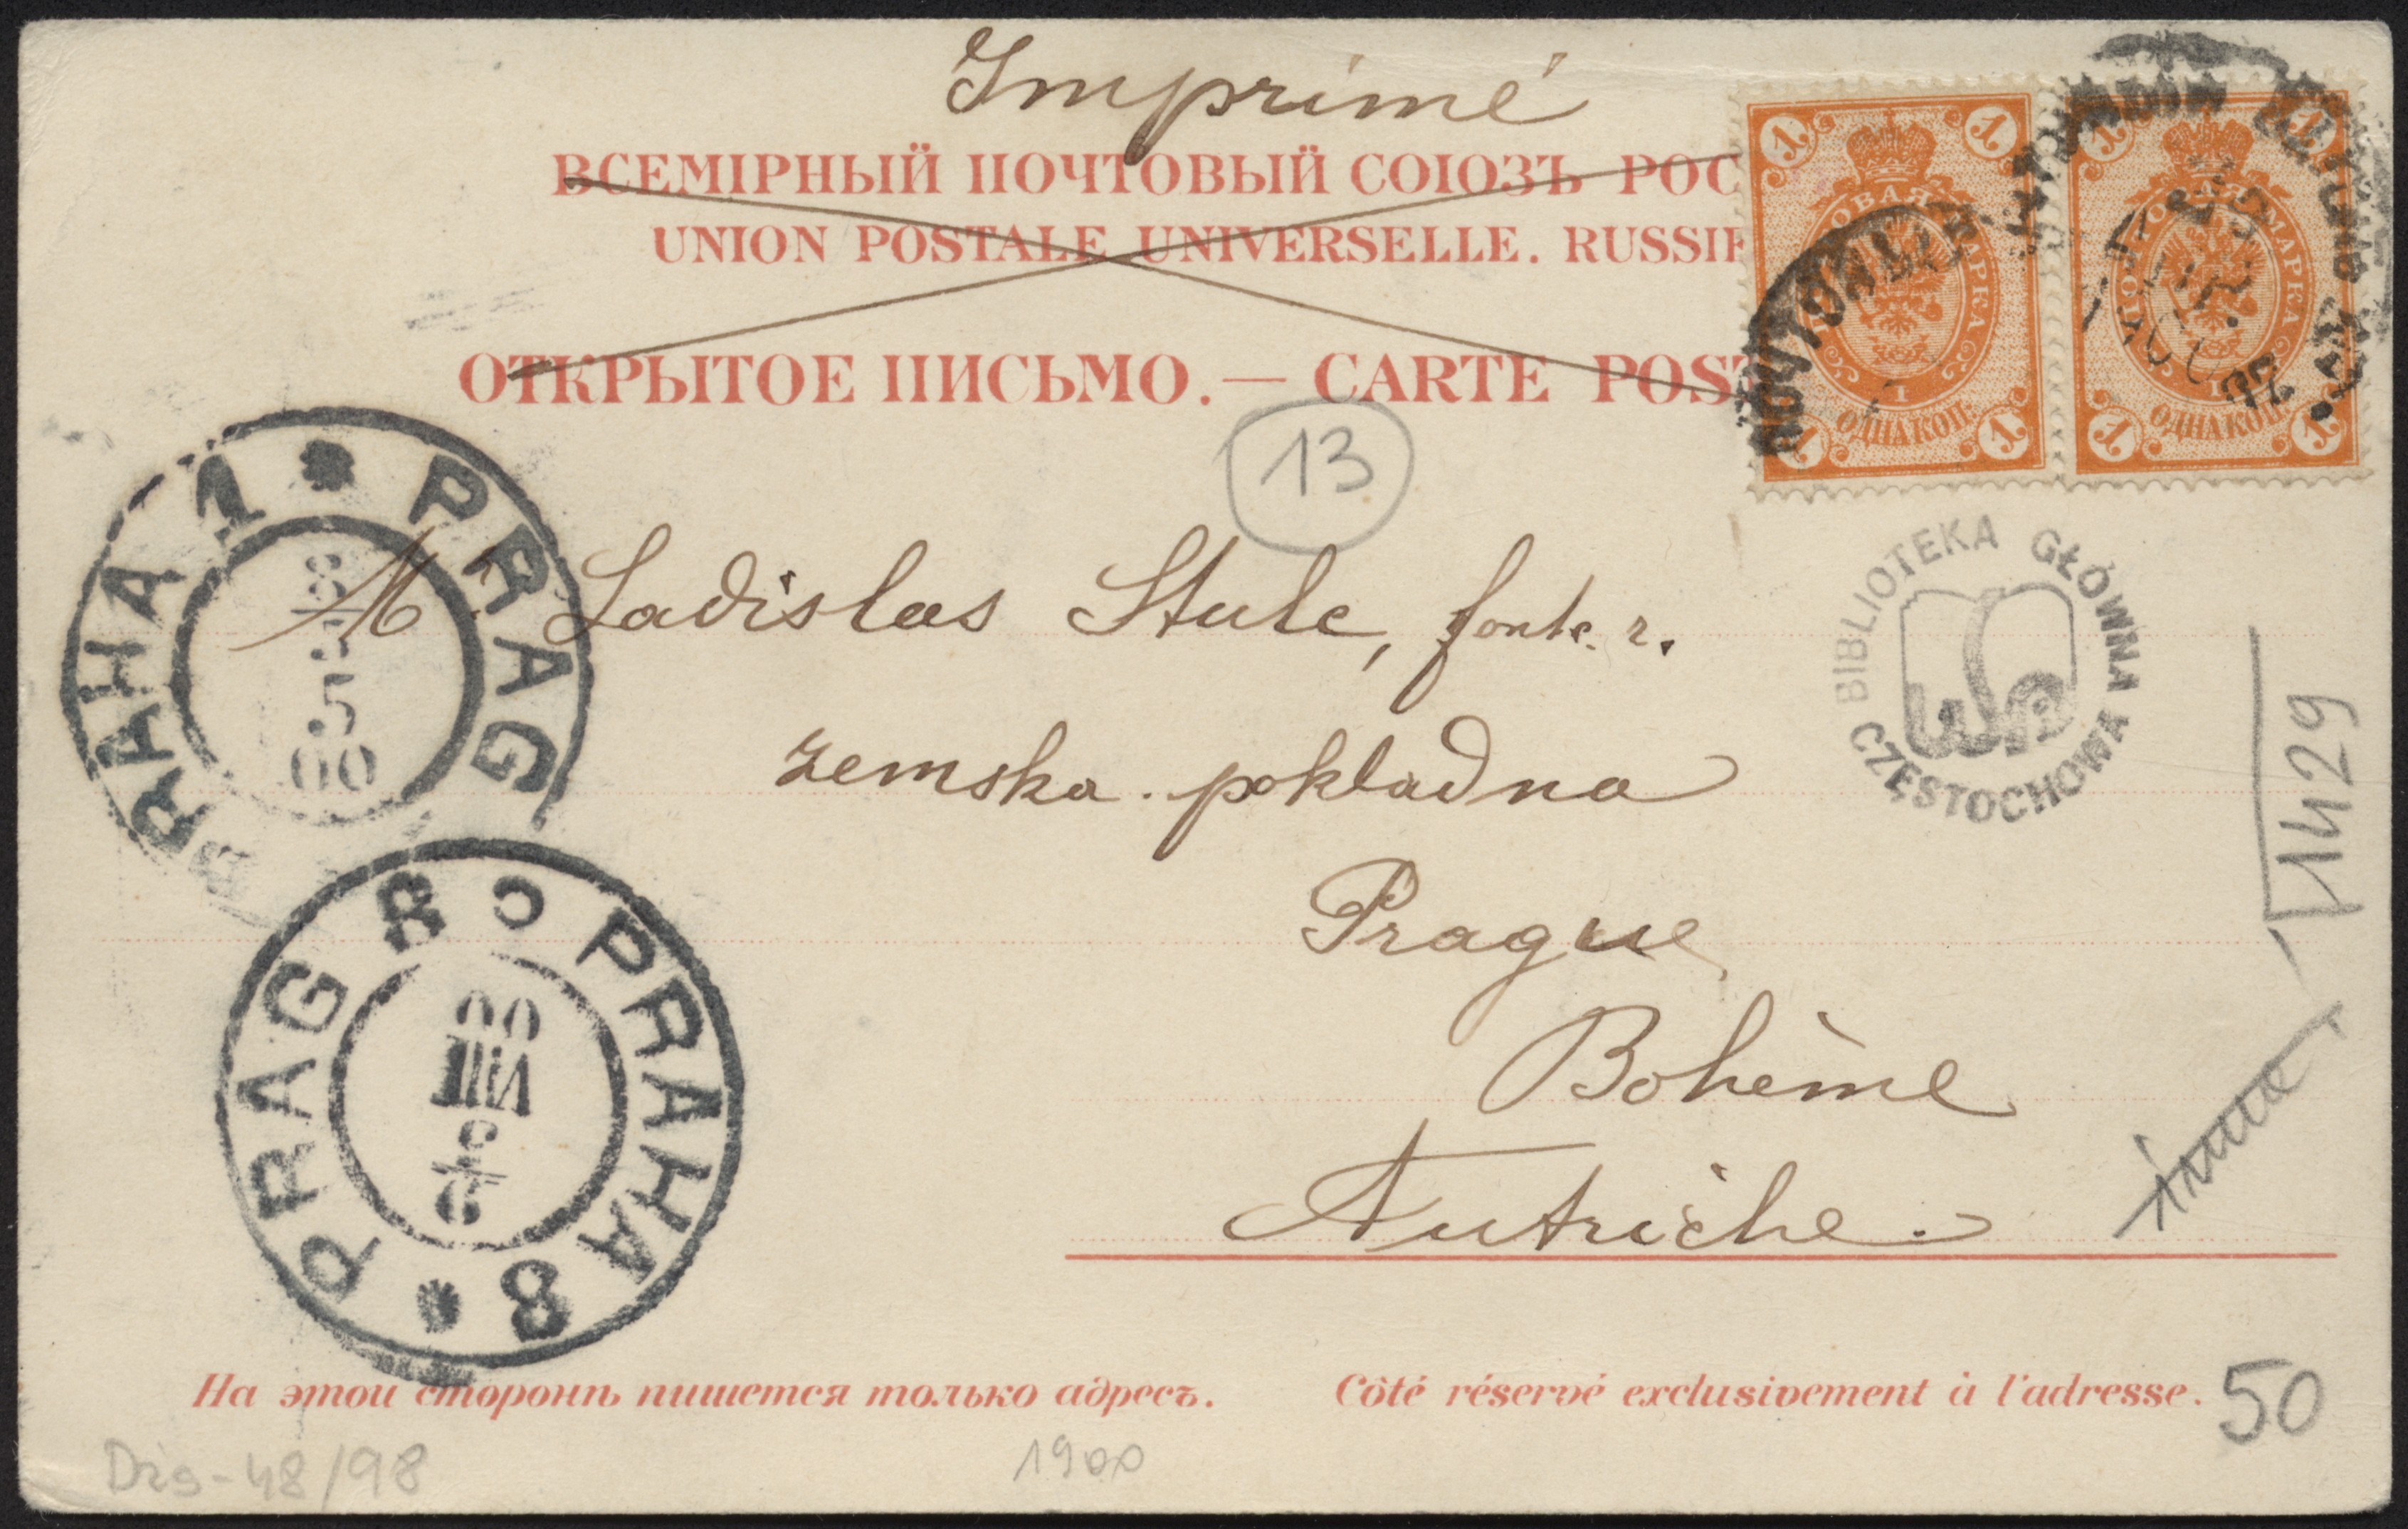 Imprimé
ВСЕМІРНЫЙ ПОЧТОВЫЙ СОЮЗЪ РОС
UNION POSTALE UNIVERSELLE. RUSSIE
ОТКРЫТОЕ ПИСЬМО. — CARTE POST
1 1
ПОЧТОВАЯ МАРКА
1
ОДНА КОП.
1 1
1 1
ПОЧТОВАЯ МАРКА
1
ОДНА КОП.
1 1
13
PRAHA 1 * PRAG
8
5
00
M. Ladislas Stulc,
zemska pokladna
Prague
Bohème
Autriche.
BIBLIOTEKA GŁÓWNA
WSP
CZĘSTOCHOWA
1429
PRAG 8 PRAHA 8 *
9
VIII
00
На этой сторонѣ пишется только адресъ. Côté réservé exclusivement à l'adresse.
50
1900